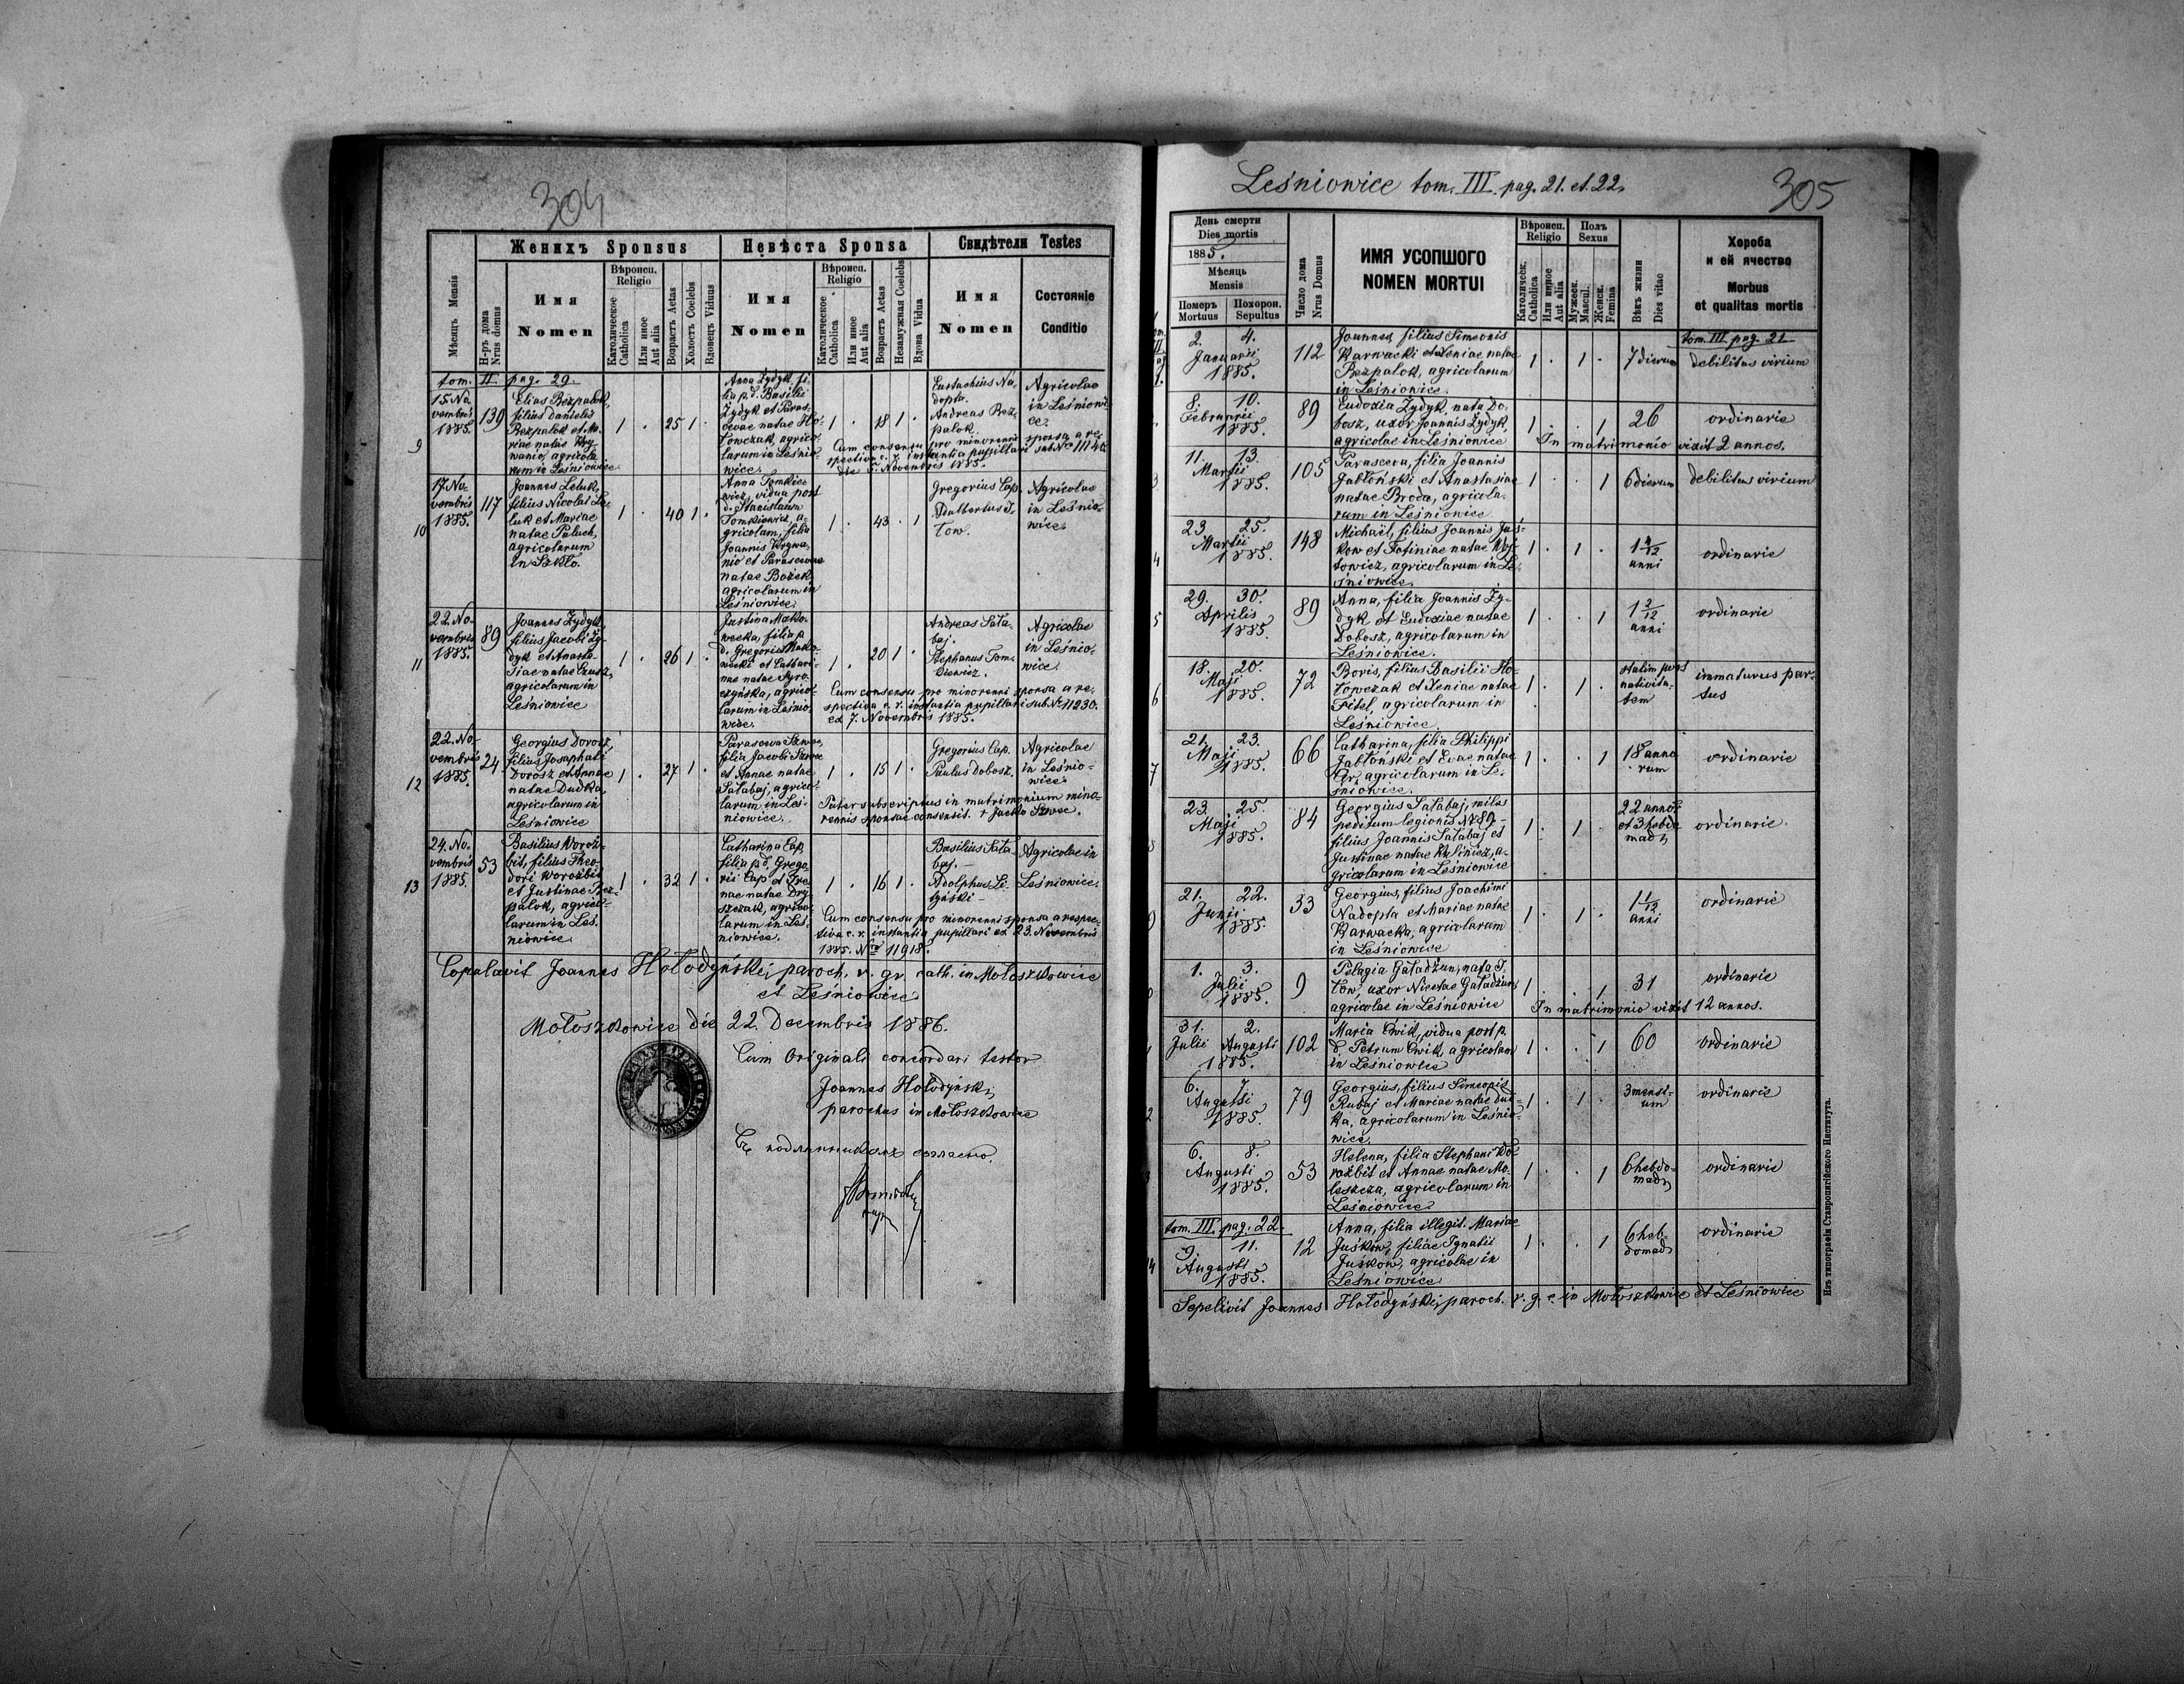 304
Женихъ Sponsus
Невѣста Sponsa
Свидѣтели Testes
Мѣсяцъ Mensis
Н-ръ дома Nrus domus
Имя Nomen
Вѣроисп. Religio
Католическое Catholica
Или иное Aut alia
Возрастъ Aetas
Холостъ Coelebs
Вдовецъ Viduus
Имя Nomen
Вѣроисп. Religio
Католическое Catholica
Или иное Aut alia
Возрастъ Aetas
Незамужная Coelebs
Вдова Vidua
Имя Nomen
Состояніе Conditio
tom. II. pag. 29.
9
15. No-
vembris
1885.
139
Elias Bezpalok,
filius Danielis
Bezpalok et Ma-
riae natae Kry-
wanio, agricola-
rum in Leśniowice
1 . 25 1 .
Anna Zydyk, fi-
lia p. d. Basilii
Zydyk et Paras-
cevae natae Ho-
łowczak, agrico-
larum in Leśnio-
wice.
1 . 18 1 .
Eustachius Na-
dopta.
Andreas Bez-
palok.
Agricolae
in Leśniowi-
ce.
Cum consensu pro minorenni sponsa a re-
spectiva c. r. instantia pupillari sub No 11140
die 5 Novembris 1885.
10
17. No-
vembris
1885.
117
Joannes Leluk,
filius Nicolai Le-
luk et Mariae
natae Paluch,
agricolarum
in Szkło.
1 . 40 1 .
Anna Tomkie-
wicz, vidua post
d. Stanislaum
Tomkiewicz, a-
gricolam, filia
Joannis Krywa-
nio et Parascevae
natae Bożek,
agricolarum in
Leśniowice.
1 . 43 . 1
Gregorius Cap.
Adalbertus I-
łow.
Agricolae
in Leśnio-
wice.
11
22. No-
vembris
1885.
89
Joannes Zydyk,
filius Jacobi Zy-
dyk et Anasta-
siae natae
agricolarum in
Leśniowice
1 . 26 1 .
Justina Mako-
wecka, filia p.
d. Gregorii Mako-
wecki et Cathari-
nae natae Syro-
czyńska, agrico-
larum in Leśnio-
wice.
1 . 20 1 .
Andreas Sała-
baj.
Stephanus Tom-
kiewicz.
Agricolae
in Leśnio-
wice.
Cum consensu pro minorenni sponsa a re-
spectiva c. r. instantia pupillari sub No 11230.
ex 7. Novembris 1885.
12
22. No-
vembris
1885.
24
Georgius Dorosz,
filius Josaphati
Dorosz et Annae
natae Dudka,
agricolarum in
Leśniowice
1 . 27 1 .
Parasceva Szwec,
filia Jacobi Szwec
et Annae natae
Sałabaj, agrico-
larum in Leś-
niowice.
1 . 15 1 .
Gregorius Cap.
Paulus Dobosz.
Agricolae
in Leśnio-
wice.
Pater subscriptus in matrimonium mino-
rennis sponsae consensit. + Jacko Szwec.
13
24. No-
vembris
1885.
53
Basilius Worož-
bit, filius Theo-
dori Worožbit
et Justinae Bez-
palok, agrico-
larum in Leś-
niowice.
1 . 32 1 .
Catharina Cap,
filia p. d. Grego-
rii Cap et Ire-
nae natae Dry-
szczak, agrico-
larum in Leś-
niowice.
1 . 16 1 .
Basilius Sała-
baj. -
Adolphus Li-
tyński -
Agricolae in
Leśniowice.
Cum consensu pro minorenni sponsa a respec-
tiva c. r. instantia pupillari ex 23. Novembris
1885. Nro 11918.
Copulavit Joannes Hołodyński, paroch. r. gr. cath. in Mołoszkowice
et Leśniowice
Mołoszkowice die 22. Decembris 1886.
Cum Originali concordari testor
Joannes Hołodyński
parochus in Mołoszkowice
Съ подлинникомъ согласно.
Leśniowice tom. III. pag. 21. et. 22.
305
День смерти
Dies mortis
1885.
Мѣсяць
Mensis
Померъ Mortuus
Похорон. Sepultus
Число дома
Nrus Domus
ИМЯ УСОПШОГО
NOMEN MORTUI
Вѣроисп. Religio
Католическ. Catholica
Или инное Aut alia
Полъ Sexus
Мужеск. Mascul.
Женск. Femina
Вѣкъ жизни
Dies vitae
Хороба
и ей ячество
Morbus
et qualitas mortis
tom. III. pag. 21.
2. 4.
Januarii
1885.
112
Joannes, filius Simeonis
Karwacki et Xeniae natae
Bezpalok, agricolarum
in Leśniowice.
1 . 1 .
7 dierum
debilitas virium
8. 10.
Februarii
1885.
89
Eudoxia Zydyk, nata Do-
bosz, uxor Joannis Zydyk,
agricolae in Leśniowice
1 . . 1
26
ordinarie
In matrimonio vixit 2 annos.
3
11. 13.
Martii
1885.
105
Parasceva, filia Joannis
Jabłoński et Anastasiae
natae Broda, agricola-
rum in Leśniowice
1 . . 1
6 dierum
debilitas virium
4
23. 25.
Martii
1885.
148
Michaël, filius Joannis Juś-
kow et Fotiniae natae Woj-
towicz, agricolarum in Le-
śniowice.
1 . 1 .
1 4/12
anni
ordinarie
5
29. 30.
Aprilis
1885.
89
Anna, filia Joannis Zy-
dyk et Eudoxiae natae
Dobosz, agricolarum in
Leśniowice.
1 . . 1
1 2/12
anni
ordinarie
6
18. 20.
Maji
1885.
72
Boris, filius Basilii Ho-
łowczak et Xeniae natae
Fitel, agricolarum in
Leśniowice.
1 . 1 .
statim post
nativita-
tem
immaturus par-
tus
7
21. 23.
Maji
1885.
66
Catharina, filia Philippi
Jabłoński et Evae natae
agricolarum in Le-
śniowice.
1 . . 1
18 anno-
rum
ordinarie
23. 25.
Maji
1885.
84
Georgius Sałabaj, miles
peditum legionis No 89 -
filius Joannis Sałabaj et
Justinae natae a-
gricolarum in Leśniowice
1 . 1 .
22 anno
et 3 hebdo
mad
ordinarie.
21. 22.
Junii
1885.
33
Georgius, filius Joachimi
Nadopta et Mariae natae
Karwacka, agricolarum
in Leśniowice
1 . 1 .
1 1/12
anni
ordinarie
1. 3.
Julii
1885.
9
Pelagia Gaładżun, nata I-
łow, uxor Nicetae Gaładżun,
agricolae in Leśniowice
1 . . 1
31
ordinarie
In matrimonio vixit 12 annos.
31. 2.
Julii Augusti
1885.
102
Maria Ćwik, vidua post p.
d. Petrum Ćwik, agricolam
in Leśniowice
1 . . 1
60
ordinarie
6. 7.
Augusti
1885.
79
Georgius, filius Simeonis
Rubaj et Mariae natae Dud-
ka, agricolarum in Leśnio-
wice.
1 . 1 .
3 mensi-
um
ordinarie
6. 8.
Augusti
1885.
53
Helena, filia Stephani Wo-
rožbit et Annae natae Mo-
leszcza, agricolarum in
Leśniowice
1 . . 1
6 hebdo-
mad
ordinarie
tom. III. pag. 22.
9. 11.
Augusti
1885.
12
Anna, filia illegit. Mariae
Juśków, filiae Ignatii
Juśkow, agricolae in
Leśniowice
1 . . 1
6 heb-
domad
ordinarie
Sepelivit Joannes Hołodyński, paroch. r. g. c. in Mołoszkowice et Leśniowice
Изъ типографіи Ставропигійского Института.